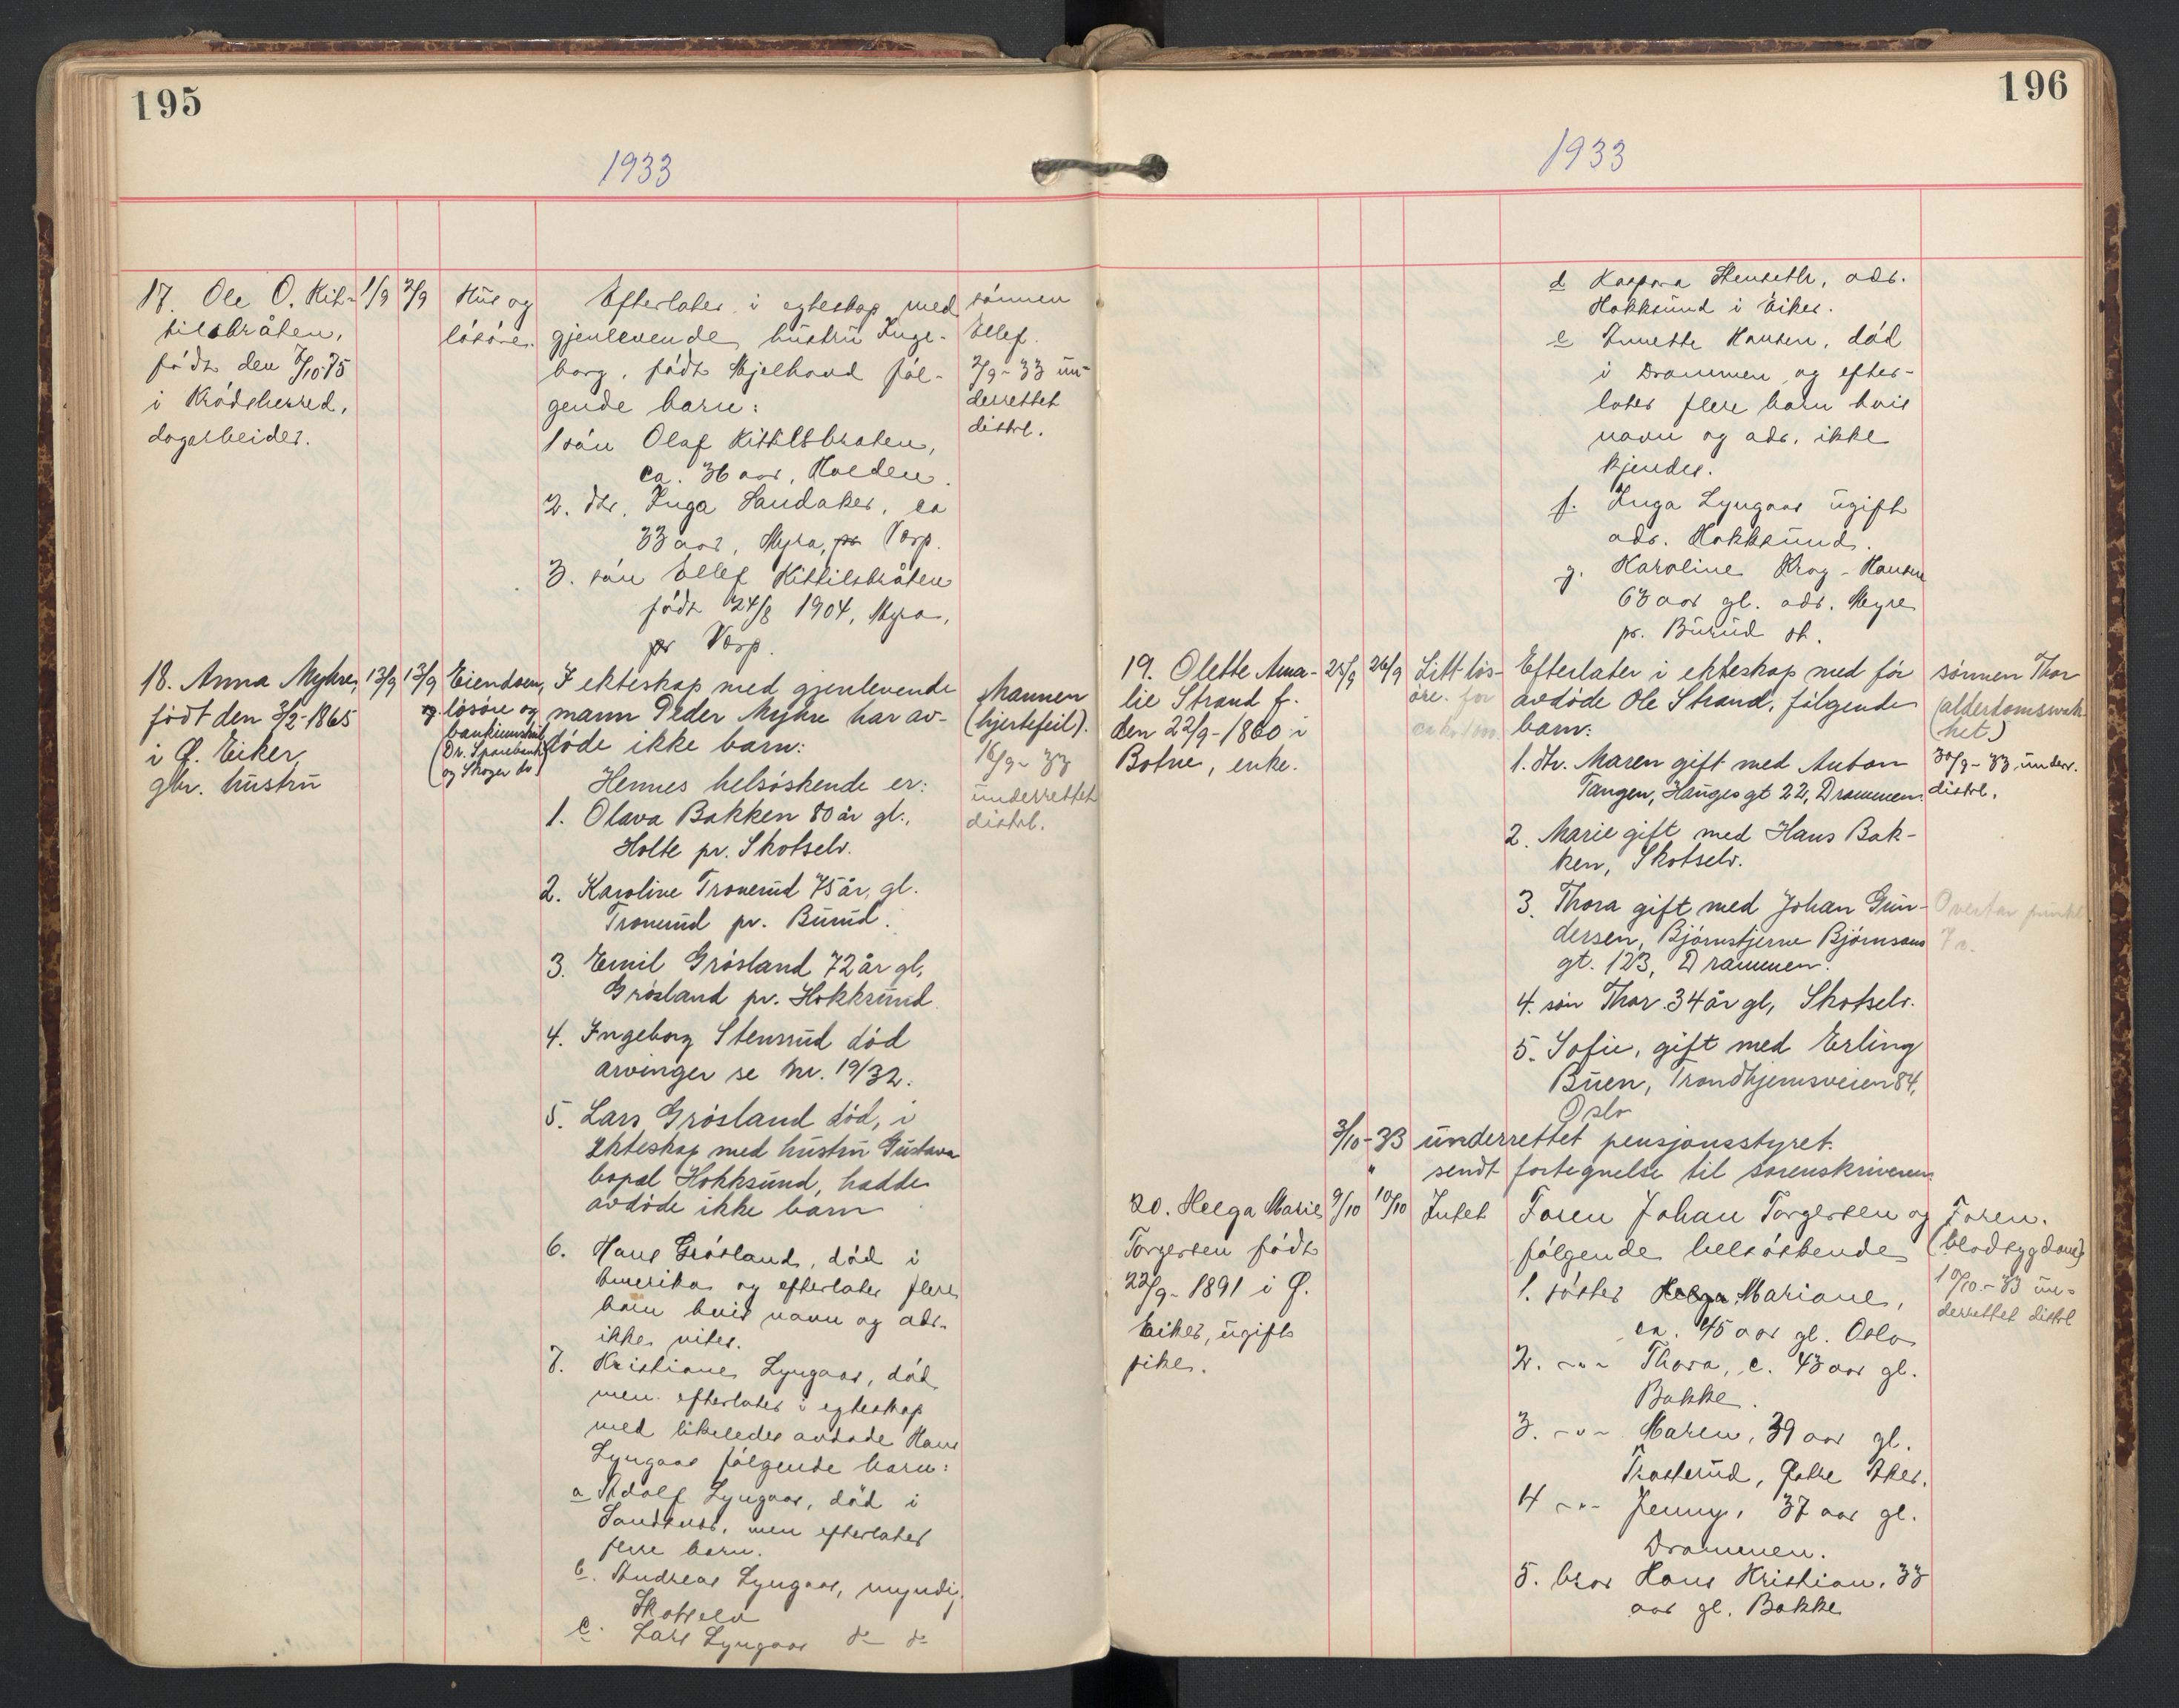 195
1933
17. Ole O. Kit-
tilsbråten,
født den 8/10 75
i Krødsherred,
dagarbeider.
1/9
2/9
Hus og
løsøre.
Efterlater i egteskap med
gjenlevende hustru Inge-
borg, født Mjelhovd føl-
gende barn:
1 søn Olaf Kittilsbraten,
ca. 36 aar, Halden.
2. dtr. Inga Sandaker, ca
33 aar, Myra, pr Vorp.
3. søn Ellef Kittilsbråten
født 24/8 1904, Myra,
pr Vorp.
sønnen
Ellef.
2/9-33 un-
derrettet
distrl.
18. Anna Myhre,
født den 3/2-1865
i Ø. Eiker,
gbr. hustru
13/9
13/9
Eiendom,
og løsøre og
bankinnskudd
(Dr. Sparebank
og Skoger do.)
I ekteskap med gjenlevende
mann Peder Myhre har av-
døde ikke barn:
Hennes helsøskende er:
1. Olava Bakken 80 år gl.,
Holte pr. Skotselv.
2. Karoline Tronerud 75 år, gl.
Tronerud pr. Burud.
3. Emil Grøsland 72 år gl,
Grøsland pr. Hokksund.
4. Ingeborg Stensrud død
arvinger se Nr. 19/32.
5. Lars Grøsland død, i
ekteskap med hustru Gustava
bopæl Hokksund, hadde
avdøde ikke barn
6. Hans Grøsland, død i
Amerika og efterlater flere
barn hvis navn og adr.
ikke vites.
7. Kristiane Lyngaas, død
men efterlater i egteskap
med likeledes avdøde Hans
Lyngaas følgende barn:
a Adolf Lyngaas, død i
Sandsvær, men efterlater
flere barn.
b. Andreas Lyngaas, myndig,
Skotselv
c. Lars Lyngaas do do
Mannen
(hjertefeil).
16/9-33
underrettet
distrl.
196
1933
d Kaspara Stenseth, adr.
Hokksund i Eiker.
e Annette Hansen, død
i Drammen og efter-
later flere barn hvis
navn og adr. ikke
kjendes.
f. Inga Lyngaas ugift
adr. Hokksund.
g. Karoline Krog-Hansen
63 aar gl. adr. Myre
pr. Burud st.
19. Olette Ama-
lie Strand f.
den 22/9-1860 i
Botne, enke.
25/9
26/9
Litt løs-
øre. for
Efterlater i ekteskap med før
avdøde Ole Strand, følgende
barn:
1. dtr. Maren gift med Anton
Tangen, Hauges gt 22, Drammen.
2. Marie gift med Hans Bak-
ken, Skotselv.
3. Thora gift med Johan Gun-
dersen, Bjørnstjerne Bjørnsons
gt. 123, Drammen.
4. søn Thor. 34 år gl, Skotselv.
5. Sofie, gift med Erling
Buen, Trondhjemsveien 84,
Oslo
sønnen Thor
(alderdomssvak-
het.)
30/9-33 underr.
distrl.
3/10-33 underrettet pensjonsstyret.
" sendt fortegnelse til sorenskriveren
20. Helga Marie
Torgersen født
22/9-1891 i Ø.
Eiker, ugift
pike.
9/10
10/10
Intet
Faren Johan Torgersen og
følgende helsøskende
1. søster Helga Mariane,
ca. 45 aar gl. Oslo
2. -"- Thora, c. 43 aar gl.
Bakke.
3. -"- Maren, 39 aar gl.
Trosterud, Østre Aker.
4 -"- Jenny, 37 aar gl.
Drammen.
5. bror Hans Kristian, 33
aar gl. Bakke
Faren.
(blodsygdom)
10/10-33 un-
derrettet distrl